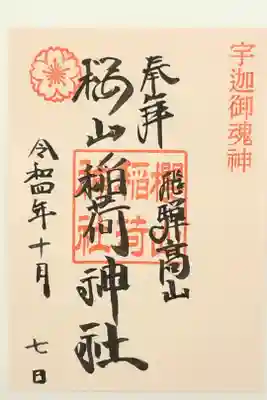 宇迦御魂神
奉拝
飛騨高山
桜山稲荷神社
櫻山稲荷神社
令和四年十月
七日